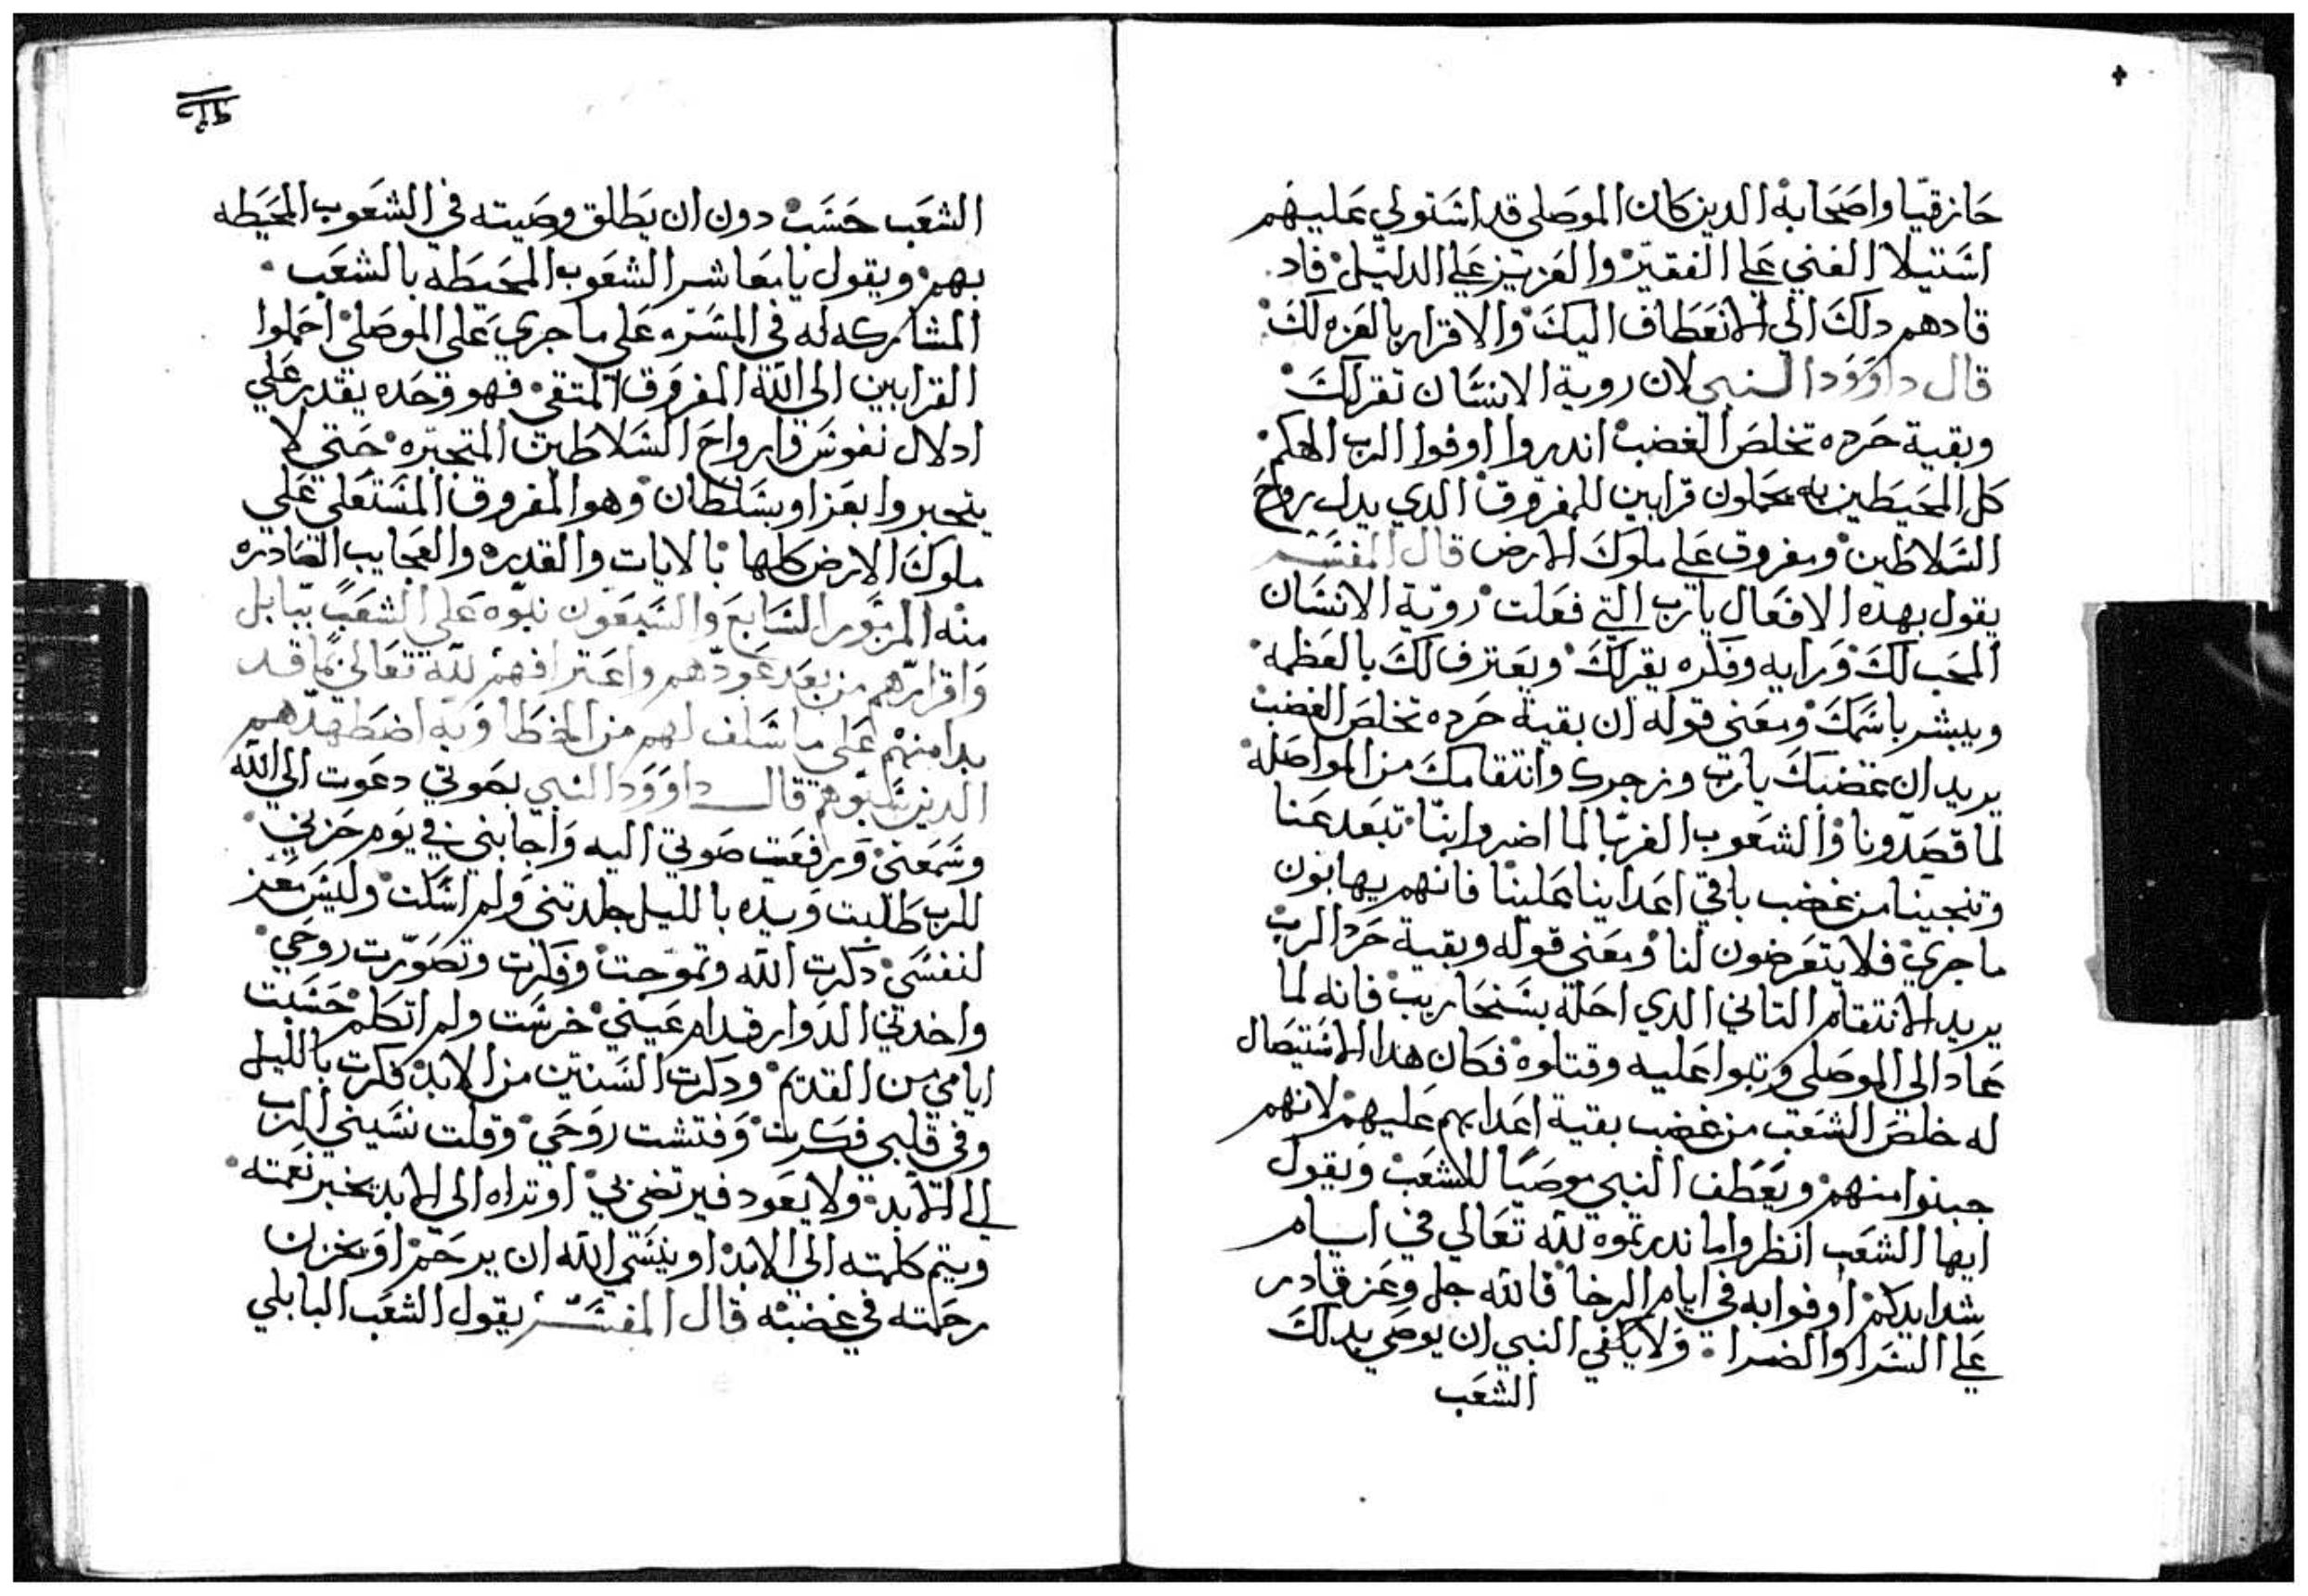 حازقيا واصحابه الدين كان الموصلي قد استولي عليهم
استيلا الغني علي الفقير والعزيز علي الدليل فاد
قادهم دلك الي الانعطاف اليك والاقرار بالعزه لك
قال داوود النبي لان روية الانسان تقر لك
وبقية حرده تخلص الغضب اندروا اوفوا الرب الهكم
كل المحيطين به يحملون قرابين للمفروق الدي يدل رواح
السلاطين ومفروق علي ملوك الارض قال المفسر
يقول بهده الافعال يا رب التي فعلت روية الانسان
المحب لك ورايه وفكره يقر لك ويعترف لك بالعظمه
ويبشر باسمك ومعني قوله ان بقية حرده تخلص الغضب
يريد ان غضبك يا رب وزجرك وانتقامك من المواصله
لما قصدونا والشعوب الغربا لما اضروا بنا تبعد عنا
وتنجينا من غضب باقي اعداينا علينا فانهم يهابون
ما جري فلا يتعرضون لنا ومعني قوله وبقية حرد الرب
يريد الانتقام التاني الدي احله بسنحاريب فانه لما
عاد الي الموصلي وتبوا عليه وقتلوه فكان هدا الاستيصال
له خلص الشعب من غضب بقية اعدايهم عليهم لانهم
جبنوا منهم ويعطف النبي موصيا للشعب ويقول
ايها الشعب انظروا ما ندرتموه لله تعالي في ايام
شدايدكم اوفوا به في ايام الرخا فالله جل وعز قادر
علي السرا والضرا ولا يكفي النبي ان يوصي بدلك
الشعب
الشعب حسب دون ان يطلق وصيته في الشعوب المحيطه
بهم ويقول يا معاشر الشعوب المحيطه بالشعب
المشاركه له في المسره علي ما جري علي الموصلي احملوا
القرابين الي الله المفروق المتقي فهو وحده يقدر علي
ادلال نفوس وارواح السلاطين المتجبره حتي لا
يتجبروا بعز او بسلطان وهو المفروق المستعلي علي
ملوك الارض كلها بالايات والقدره والعجايب الصادره
منه المزمور السابع والسبعون نبوه علي الشعب ببابل
واقرارهم من بعد عودهم واعترافهم لله تعالي بما قد
بدا منهم علي ما سلف لهم من الخطا وبه اضطهدهم
الدين سبوهم قال داوود النبي بصوتي دعوت الي الله
وسمعني ورفعت صوتي اليه واجابني في يوم حزني
للرب طلبت ويده بالليل جلدتني ولم اسكت وليس معز
لنفسي دكرت الله وتموجت وفكرت وتصورت روحي
واخدني الدوار قدام عيني خرست ولم اتكلم حسبت
ايامي من القديم ودكرت السنين من الابد فكرت بالليل
وفي قلبي فكرت وفتشت روحي وقلت نسيني الرب
الي الابد ولا يعود فيرتضي بي او تراه الي الابد يخير نعمته
ويتم كلمته الي الابد او ينسي الله ان يرحم او يخزن
رحمته في غضبه قال المفسر يقول الشعب البابلي